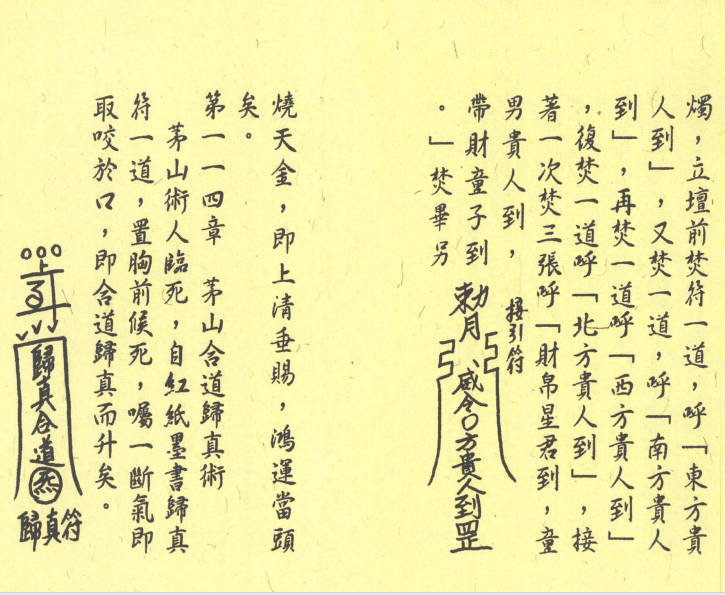 燭，立壇前焚符一道，呼「東方貴
人到」，又焚一道，呼「南方貴人
到」，再焚一道呼「西方貴人到」
，復焚一道呼「北方貴人到」，接
著一次焚三張呼「財帛星君到，童
男貴人到，
帶財童子到
。」焚畢另
接引符
勅月 威令〇方貴人到罡
燒天金，即上清垂賜，鴻運當頭
矣。
第一一四章　茅山合道歸真術
茅山術人臨死，自紅紙墨書歸真
符一道，置胸前候死，囑一斷氣即
取咬於口，即合道歸真而升矣。
歸真合道
歸真符